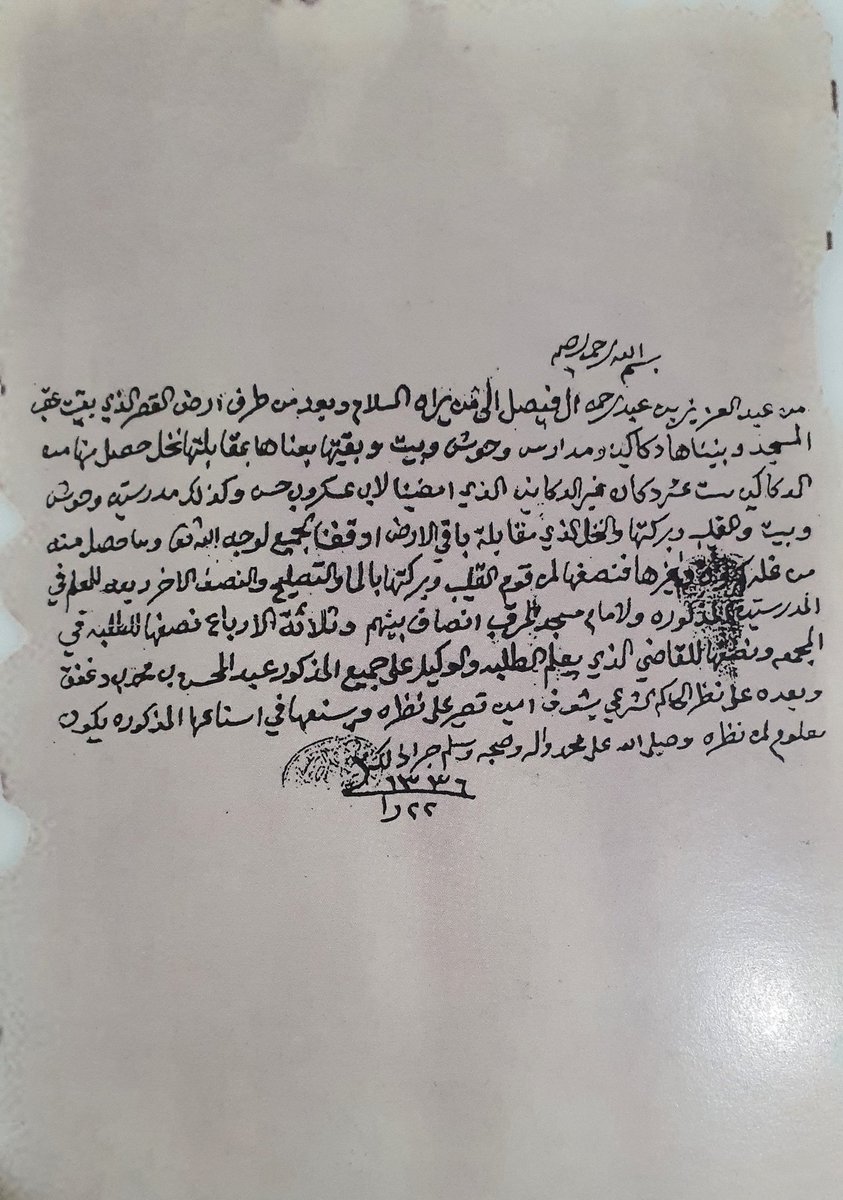 بسم الله الرحمن الرحيم
من عبدالعزيز بن عبدالرحمن ال فيصل الى من يراه السلام وبعد من طرف ارض القصر الذي بقيت عقب
المسجد وبنيناها دكاكين ومدارس وحوش وبيت وبقيتها بعناها بمقابلتها نخل حصل منها من
الدكاكين ست عشر دكان غير الدكانين الذي امضينا لابن عسكر وبن حسن وكذلك مدرستين وحوش
وبيت والقليب وبركتها والنخل الذي مقابلة باقي الارض اوقفنا الجميع لوجه الله تعالى وما حصل منه
من غلة وغيرها فنصفها لمن قوم القليب وبركتها بالماء والتصليح والنصف الاخر ربعه للمعلم في
المدرستين المذكوره ولامام مسجد المرقب انصاف بينهم وثلاثة الارباع نصفها للطلبه في
المجمعه ونصفها للقاضي الذي يعلم الطلبه والوكيل على جميع المذكور عبدالمحسن بن محمد بن دغفق
وبعده على نظر الحاكم الشرعي يشوف امين تصير على نظره ومن سنعها في اسناعها المذكوره يكون
معلوم لمن نظره وصلى الله على محمد واله وصحبه وسلم جرا ذلك
١٣٣٦
٢٢ را